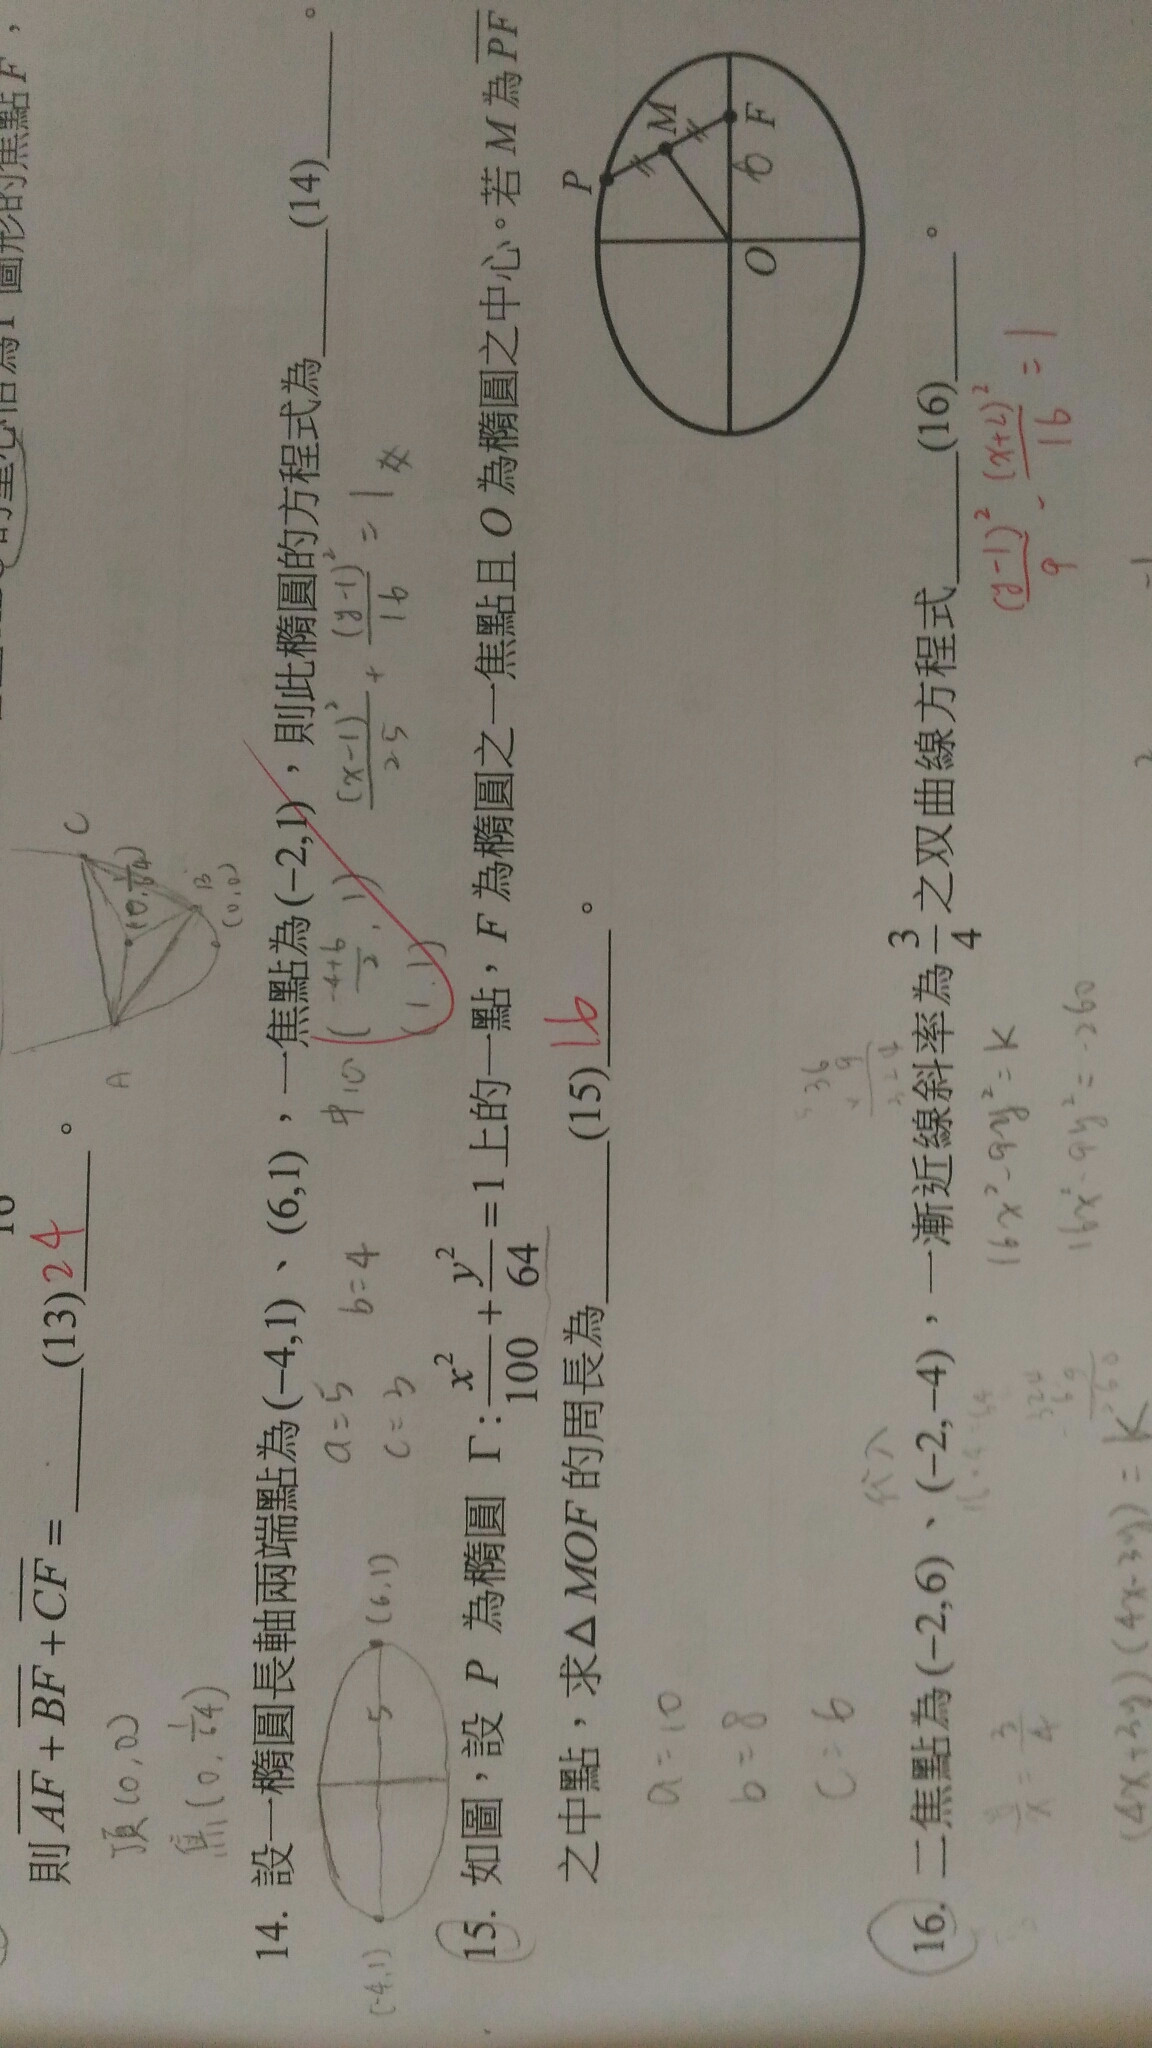 則 AF + BF + CF = ______(13) 24 。
頂(0,0)
焦(0, 1/64)
A
C
B
(0,0)
14. 設一橢圓長軸兩端點為(−4,1)、(6,1)，一焦點為(−2,1)，則此橢圓的方程式為______(14)______。
(-4,1)
5
(6,1)
a=5
b=4
c=3
中心(-4+6/2, 1)
(1,1)
(x-1)²/25 + (y-1)²/16 = 1
15. 如圖，設 P 為橢圓 Γ: x²/100 + y²/64 = 1上的一點，F 為橢圓之一焦點且 O 為橢圓之中心。若 M 為 PF
之中點，求△MOF 的周長為______(15) 16 。
a=10
b=8
c=6
P
M
6
O
F
16. 二焦點為(−2,6)、(−2,−4)，一漸近線斜率為 3/4 之双曲線方程式______(16)______。
代入
36
9
324
= 3/4
16x²-9y²=K
16x²-9y²=-260
(y-1)²/9 - (x+2)²/16 = 1
(4x+3y)(4x-3y)=K